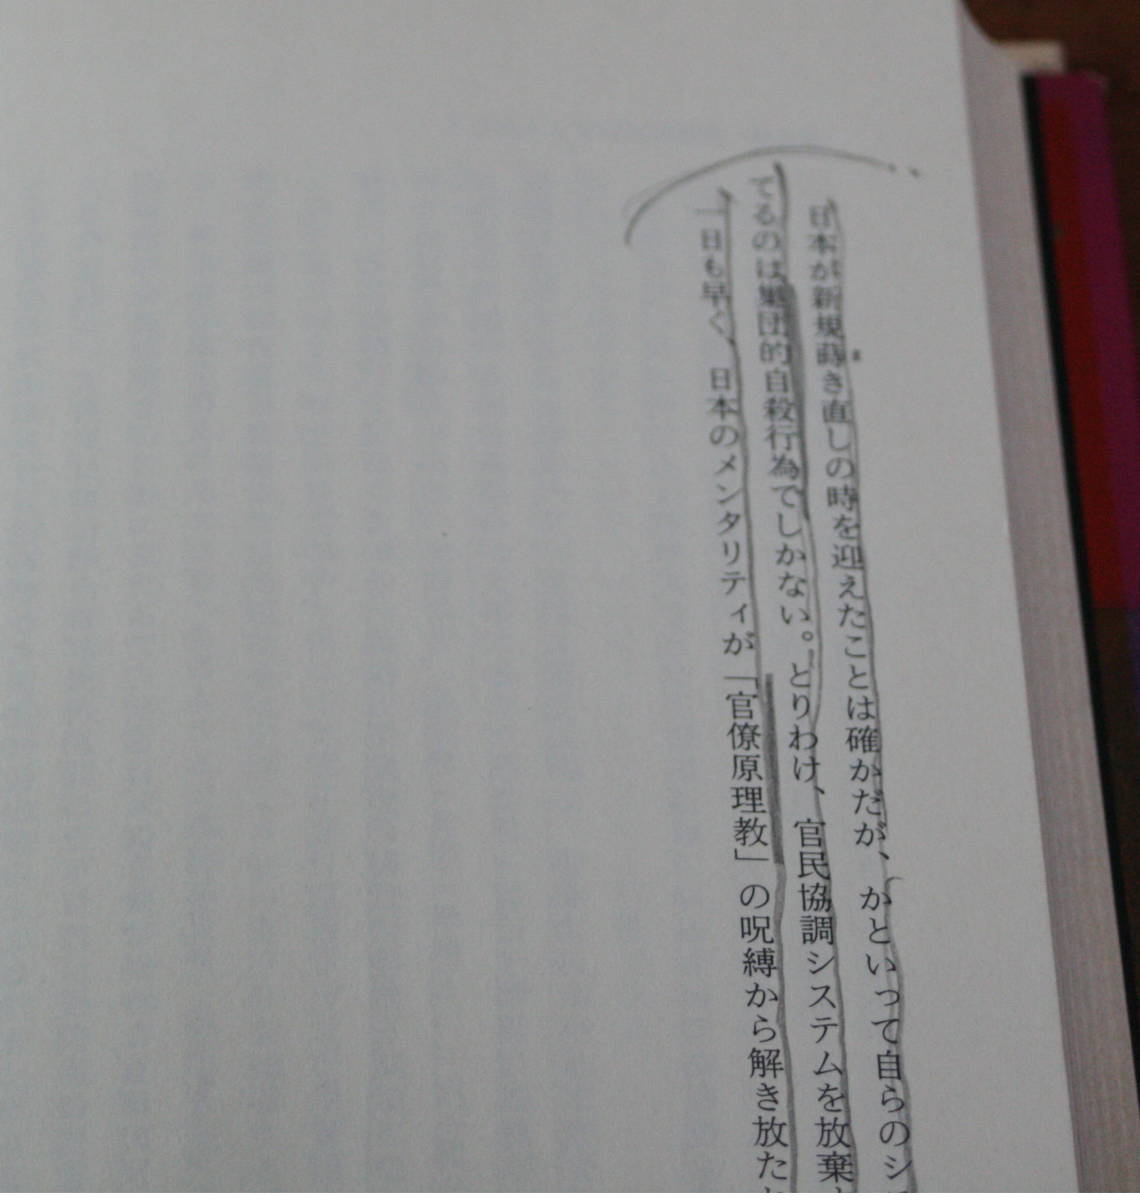 日本が新規蒔き直しの時を迎えたことは確かだが、かといって自らのシ
てるのは集団的自殺行為でしかない。とりわけ、官民協調システムを放棄
一日も早く、日本のメンタリティが「官僚原理教」の呪縛から解き放た